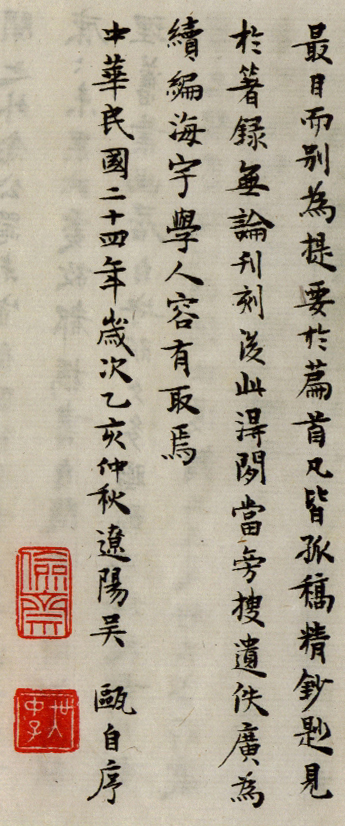 最目而别為提要於篇首凡皆孤稿精鈔尟見
於著録無論刊刻後此得閒當旁搜遺佚廣為
續編海宇學人容有取焉
中華民國二十四年歲次乙亥仲秋遼陽吴甌自序